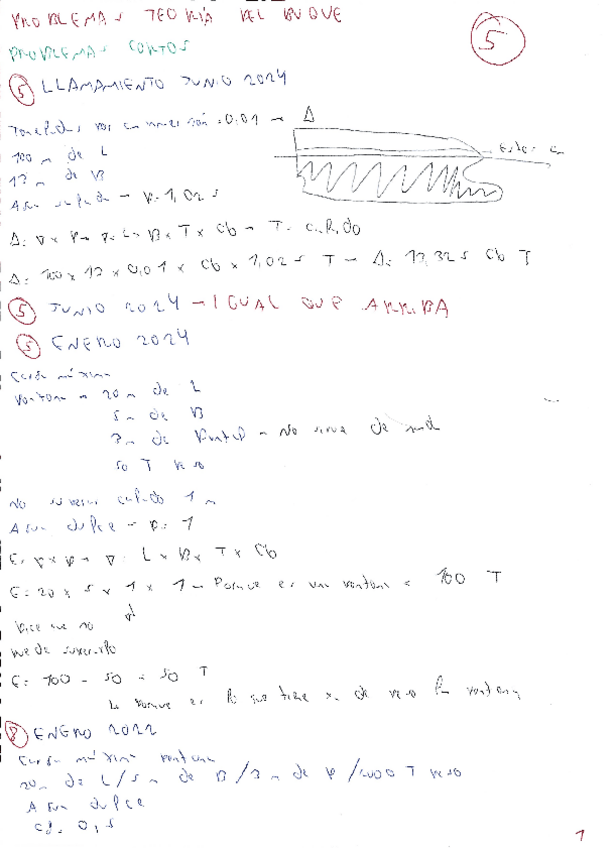 PROBLEMAS TEORÍA DEL BUQUE
5
PROBLEMAS CORTOS
5 LLAMAMIENTO JUNIO 2024
Toneladas por cm inmersión: 0,01 → Δ
100 m de L
13 m de B
Agua salada → ρ: 1,025
Δ: ∇ × ρ → ρ: L × B × T × Cb → T: calado
Δ: 100 × 13 × 0,01 × Cb × 1,025 T → Δ: 13,325 Cb T
5 JUNIO 2024 → IGUAL QUE ARRIBA
5 ENERO 2024
Carga máxima
Pontona → 20 m de L
5 m de B
3 m de Puntal → No sirve de
50 T peso
No superar calado 1 m
Agua dulce → ρ: 1
E: ∇ × ρ → ∇: L × B × T × Cb
E: 20 × 5 × 1 × 1 → Porque es una pontona = 100 T
Dice que no
puede superarlo
E: 100 - 50 = 50 T
Porque es lo que tiene de peso la pontona
8 ENERO 2022
Carga máxima pontona
20 m de L / 5 m de B / 3 m de P / T peso
Agua dulce
0,5
1